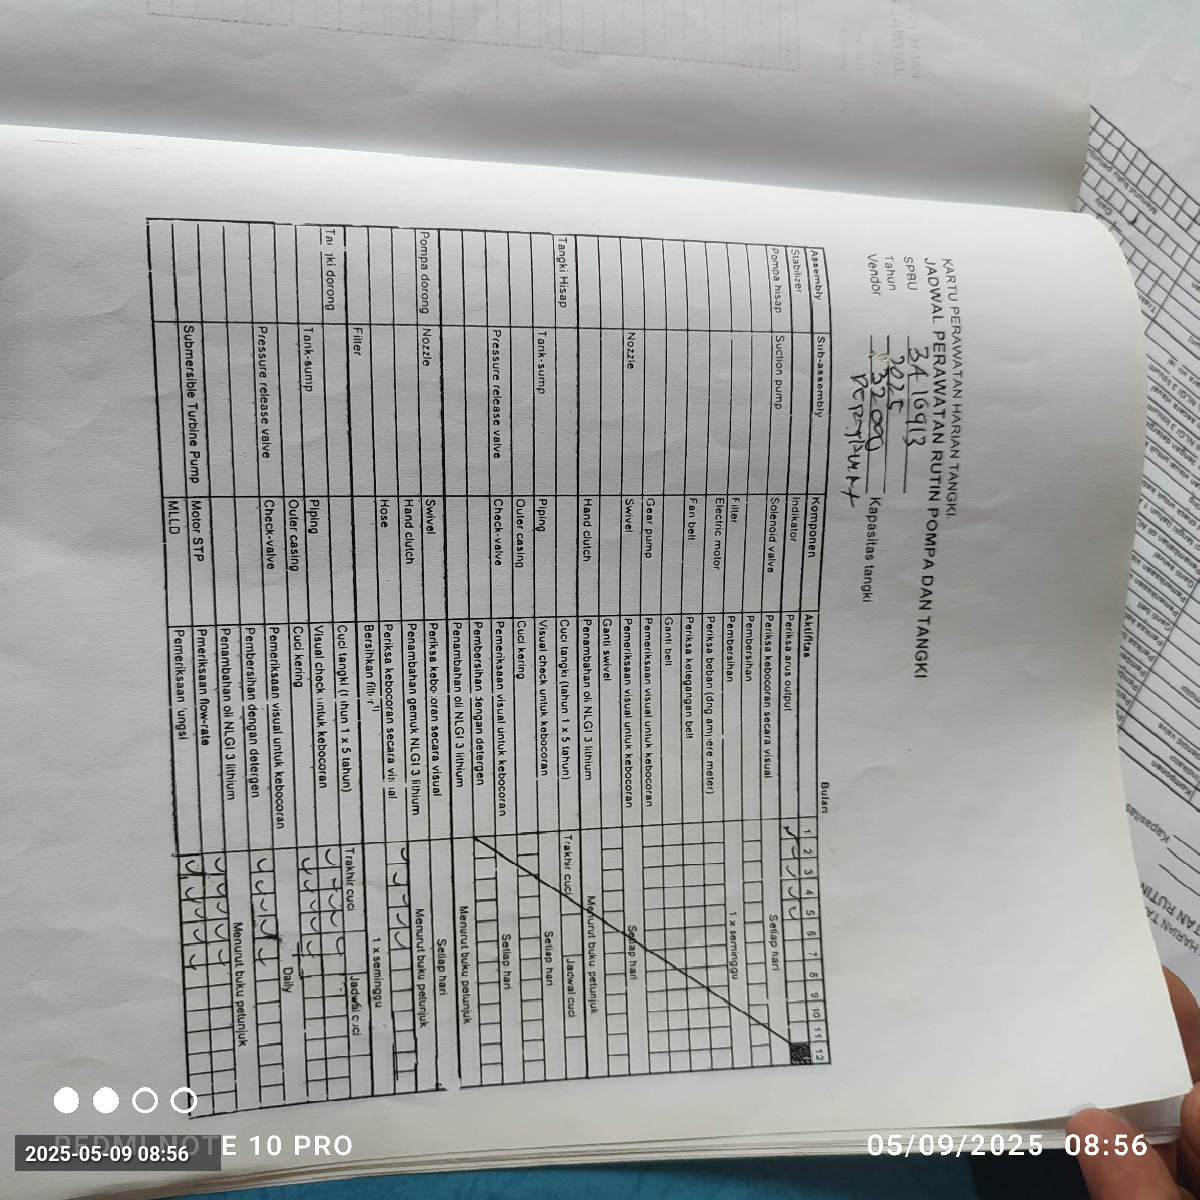 KARTU PERAWATAN HARIAN TANGKI.
JADWAL PERAWATAN RUTIN POMPA DAN TANGKI
SPBU 3416913
Tahun 2025
Vendor 32000 Kapasitas tangki
Bulan
Assembly Sub-assembly Komponen Aktifitas 1 2 3 4 5 6 7 8 9 10 11 12
Stabilizer Indikator Periksa arus output
Pompa hisap Suction pump Solenoid valve Periksa kebocoran secara visual Setiap hari
Pembersihan
Filter Pembersihan 1 x seminggu
Electric motor Periksa beban (dng ampere meter)
Fan belt Periksa ketegangan belt
Ganti belt
Gear pump Pemeriksaan visual untuk kebocoran
Nozzle Swivel Pemeriksaan visual untuk kebocoran Setiap hari
Ganti swivel
Hand clutch Penambahan oli NLGI 3 lithium Menurut buku petunjuk
Tangki Hisap Cuci tangki (tahun 1 x 5 tahun) Trakhir cuci Jadwal cuci
Tank-sump Piping Visual check untuk kebocoran Setiap hari
Outer casing Cuci kering
Pressure release valve Check-valve Pemeriksaan visual untuk kebocoran Setiap hari
Pembersihan dengan detergen
Penambahan oli NLGI 3 lithium Menurut buku petunjuk
Pompa dorong Nozzle Swivel Periksa kebocoran secara visual Setiap hari
Hand clutch Penambahan gemuk NLGI 3 lithium Menurut buku petunjuk
Hose Periksa kebocoran secara visual
Filter Bersihkan filter 1) 1 x seminggu
Tangki dorong Cuci tangki (tahun 1 x 5 tahun) Trakhir cuci Jadwal cuci
Tank-sump Piping Visual check untuk kebocoran
Outer casing Cuci kering
Pressure release valve Check-valve Pemeriksaan visual untuk kebocoran Daily
Pembersihan dengan detergen
Penambahan oli NLGI 3 lithium Menurut buku petunjuk
Submersible Turbine Pump Motor STP Pmeriksaan flow-rate
MLLD Pemeriksaan fungsi
REDMI NOTE 10 PRO
2025-05-09 08:56
05/09/2025 08:56